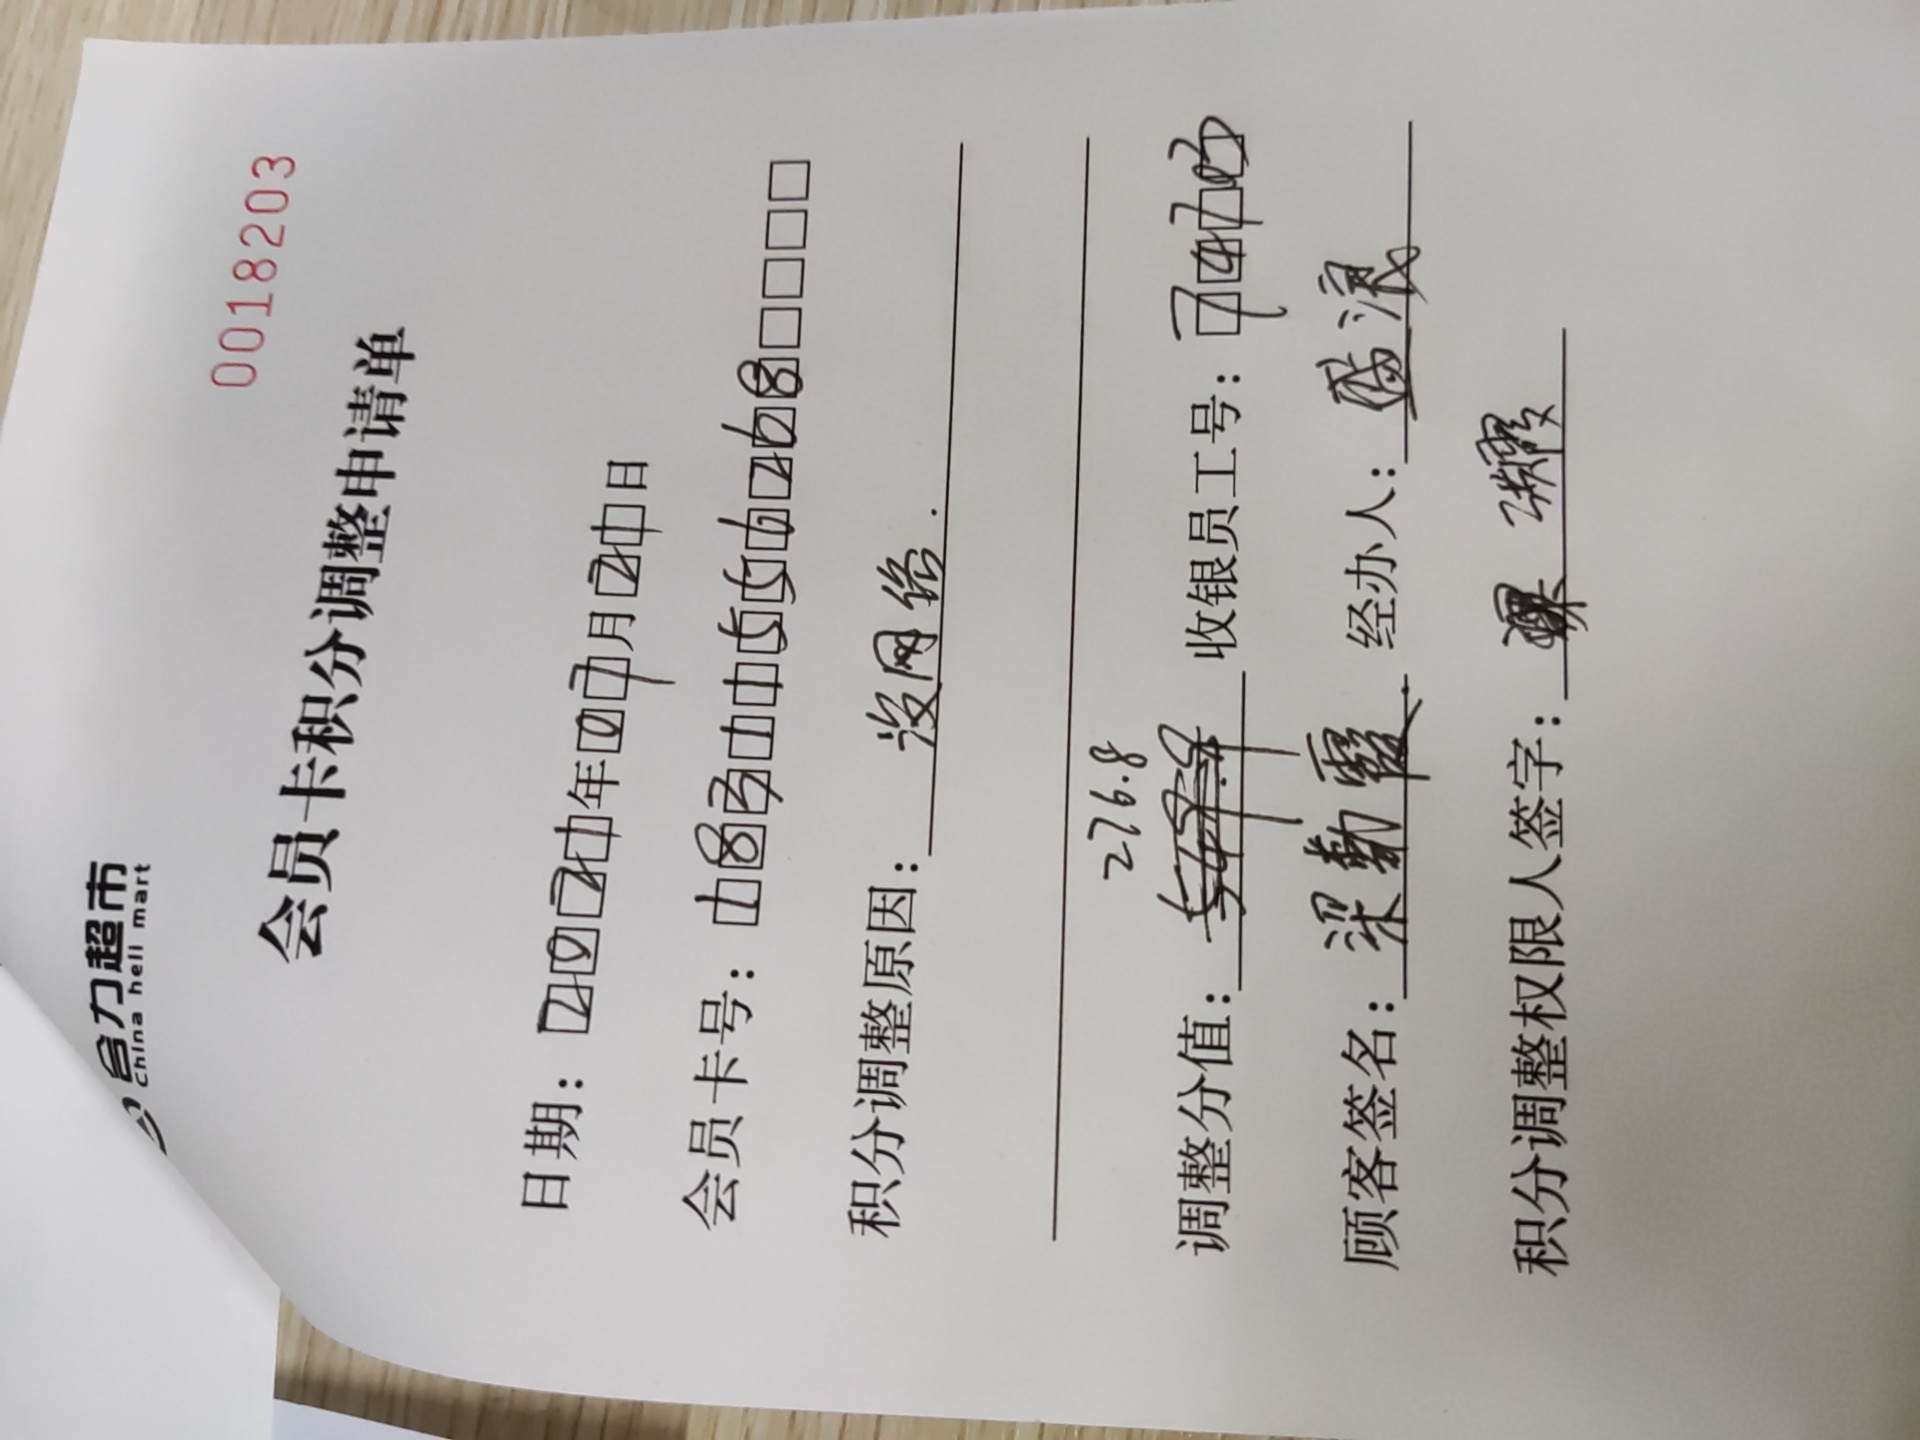 合力超市
china heli mart
0018203
会员卡积分调整申请单
日期：2021年07月21日
会员卡号：18311556268
积分调整原因：没网络.
226.8
调整分值： 收银员工号：7473
顾客签名：梁勤霞 经办人：蓝浪
积分调整权限人签字：